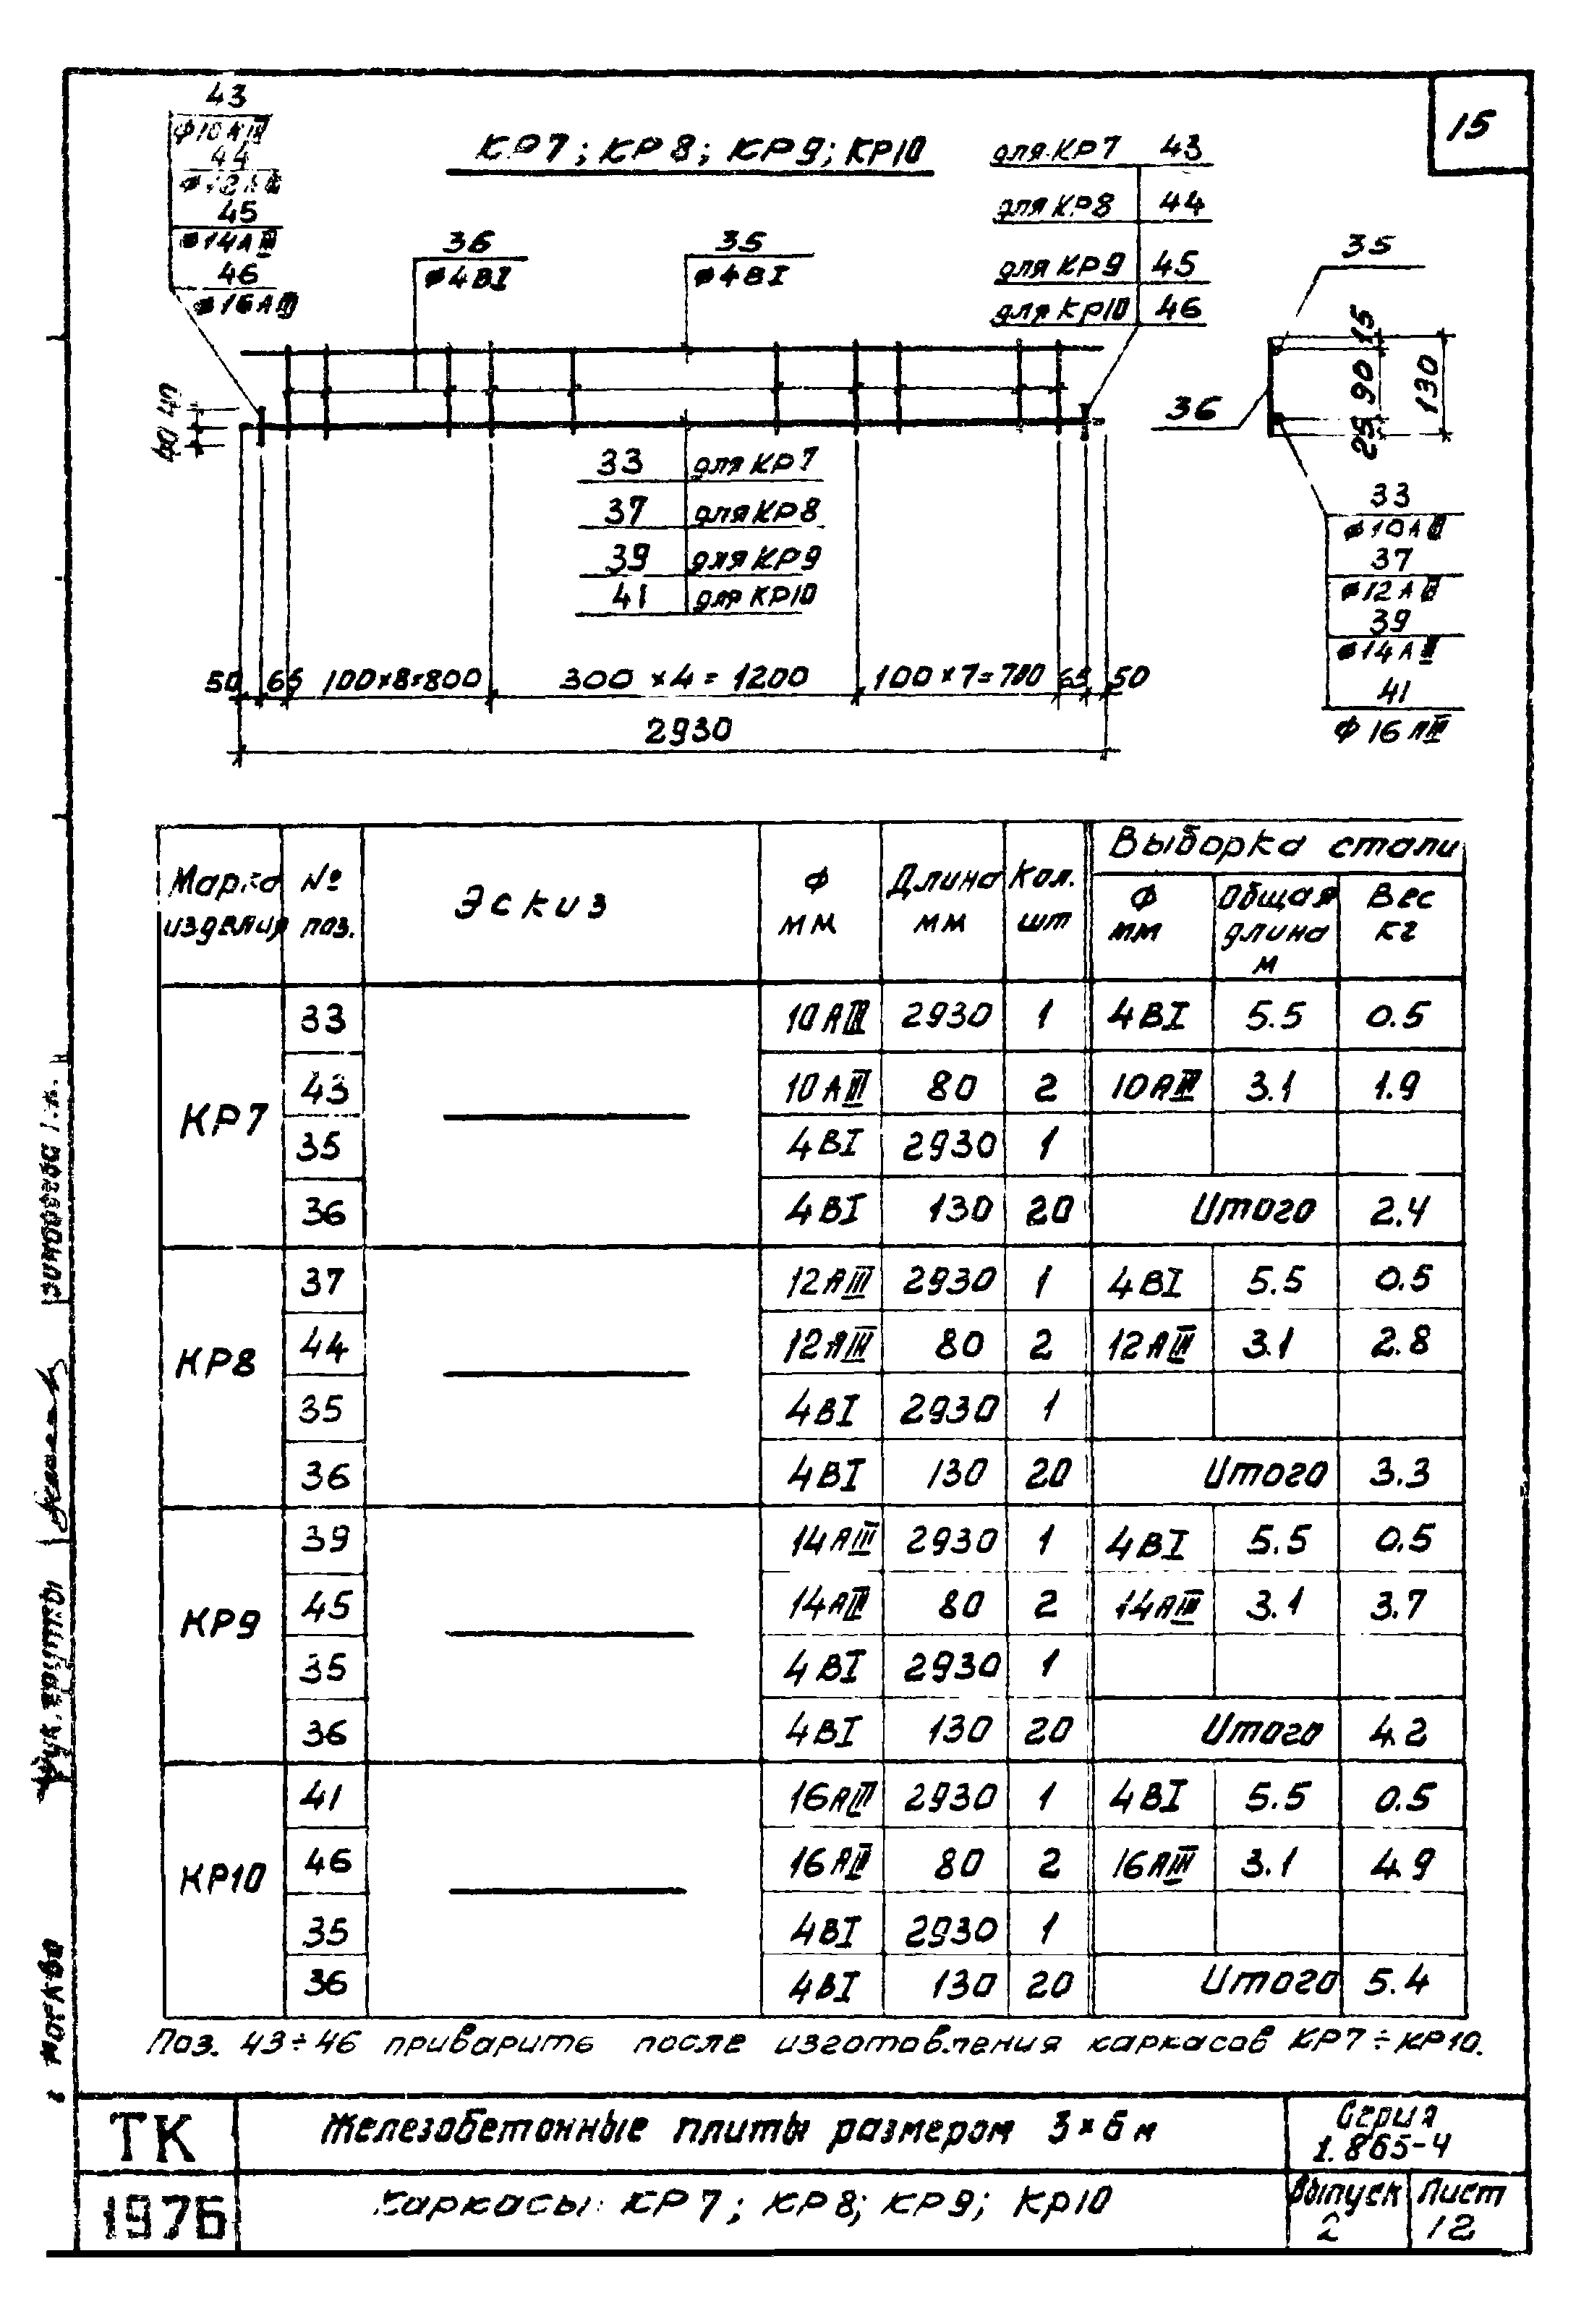 15
КР7; КР8; КР9; КР10
43
ф10АIII
44
ф12АIII
45
ф14АIII
46
ф16АIII
36
ф4ВI
35
ф4ВI
для КР7 43
для КР8 44
для КР9 45
для КР10 46
40 40
33 для КР7
37 для КР8
39 для КР9
41 для КР10
50 65 100×8=800 300×4=1200 100×7=700 65 50
2930
35
36
15
90
25
130
33
ф10АIII
37
ф12АIII
39
ф14АIII
41
ф16АIII
Марка изделия № поз. Эскиз ф мм Длина мм Кол. шт Выборка стали
ф мм Общая длина м Вес кг
КР7
33 10АIII 2930 1 4ВI 5.5 0.5
43 10АIII 80 2 10АIII 3.1 1.9
35 4ВI 2930 1
36 4ВI 130 20 Итого 2.4
КР8
37 12АIII 2930 1 4ВI 5.5 0.5
44 12АIII 80 2 12АIII 3.1 2.8
35 4ВI 2930 1
36 4ВI 130 20 Итого 3.3
КР9
39 14АIII 2930 1 4ВI 5.5 0.5
45 14АIII 80 2 14АIII 3.1 3.7
35 4ВI 2930 1
36 4ВI 130 20 Итого 4.2
КР10
41 16АIII 2930 1 4ВI 5.5 0.5
46 16АIII 80 2 16АIII 3.1 4.9
35 4ВI 2930 1
36 4ВI 130 20 Итого 5.4
Поз. 43÷46 приварить после изготовления каркасов КР7÷КР10.
ТК Железобетонные плиты размером 3×6м Серия
1.865-4
1976 Каркасы: КР7; КР8; КР9; КР10 Выпуск 2 Лист 12
Рук. группы
Москва